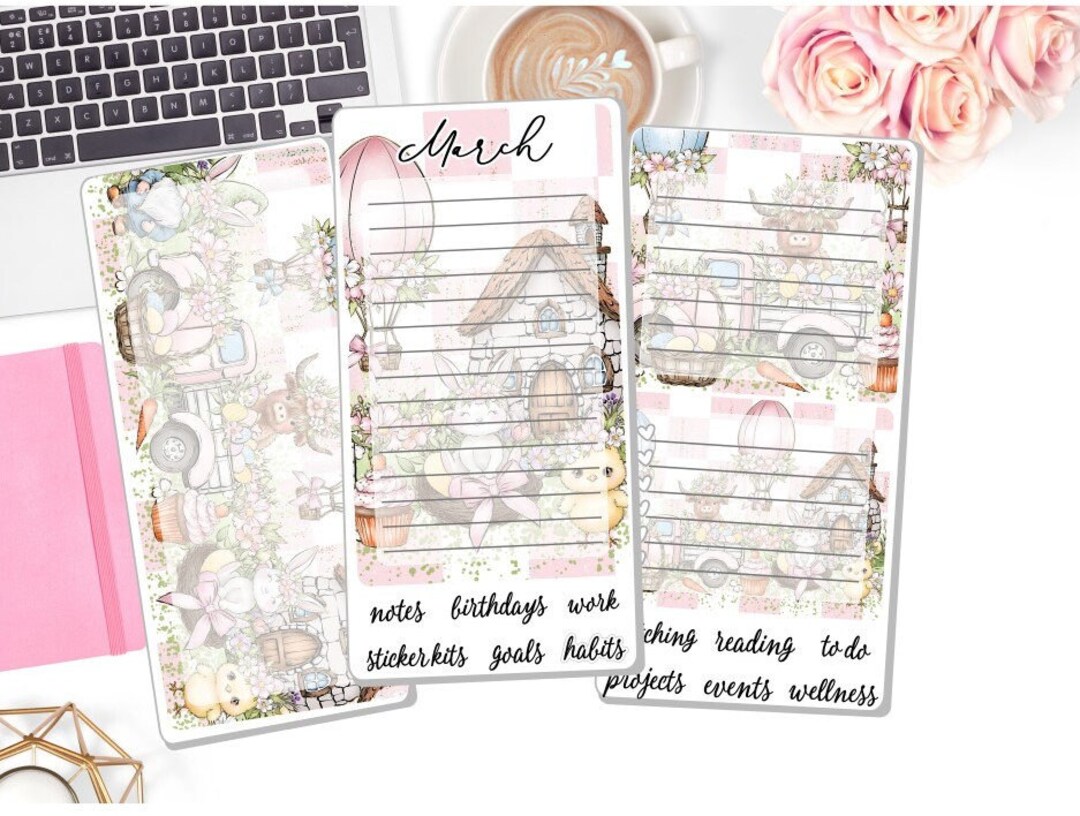 March
notes birthdays work
sticker kits goals habits
reading to do
projects events wellness